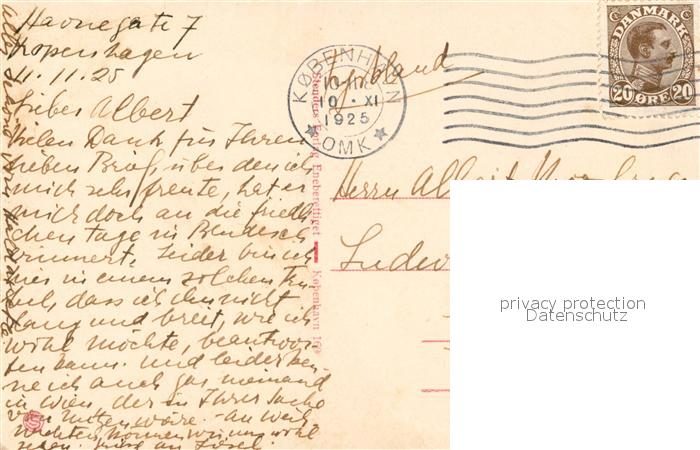 Havnegade 7
Kopenhagen
11.11.25
Lieber Albert
Vielen Dank für Ihren
lieben Brief, über den ich
mich sehr freute, hat er
mich doch an die friedli
chen tage in
erinnert. Leider bin ich
hier in einem solchen
dass ich ihn nicht
lang und breit, wie ich
wohl möchte, beantwor
ten kann. und leider ken
ne ich auch gar niemand
in Wien, der in Ihrer Sache
von Nutzen wäre. An Weih
nachten können wir uns wohl
sehen.
Stenders Forlag Eneberettiget
København
KØBENHAVN
10 XI
1925
OMK
DANMARK
20 ØRE 20
Herrn Albert
privacy protection
Datenschutz